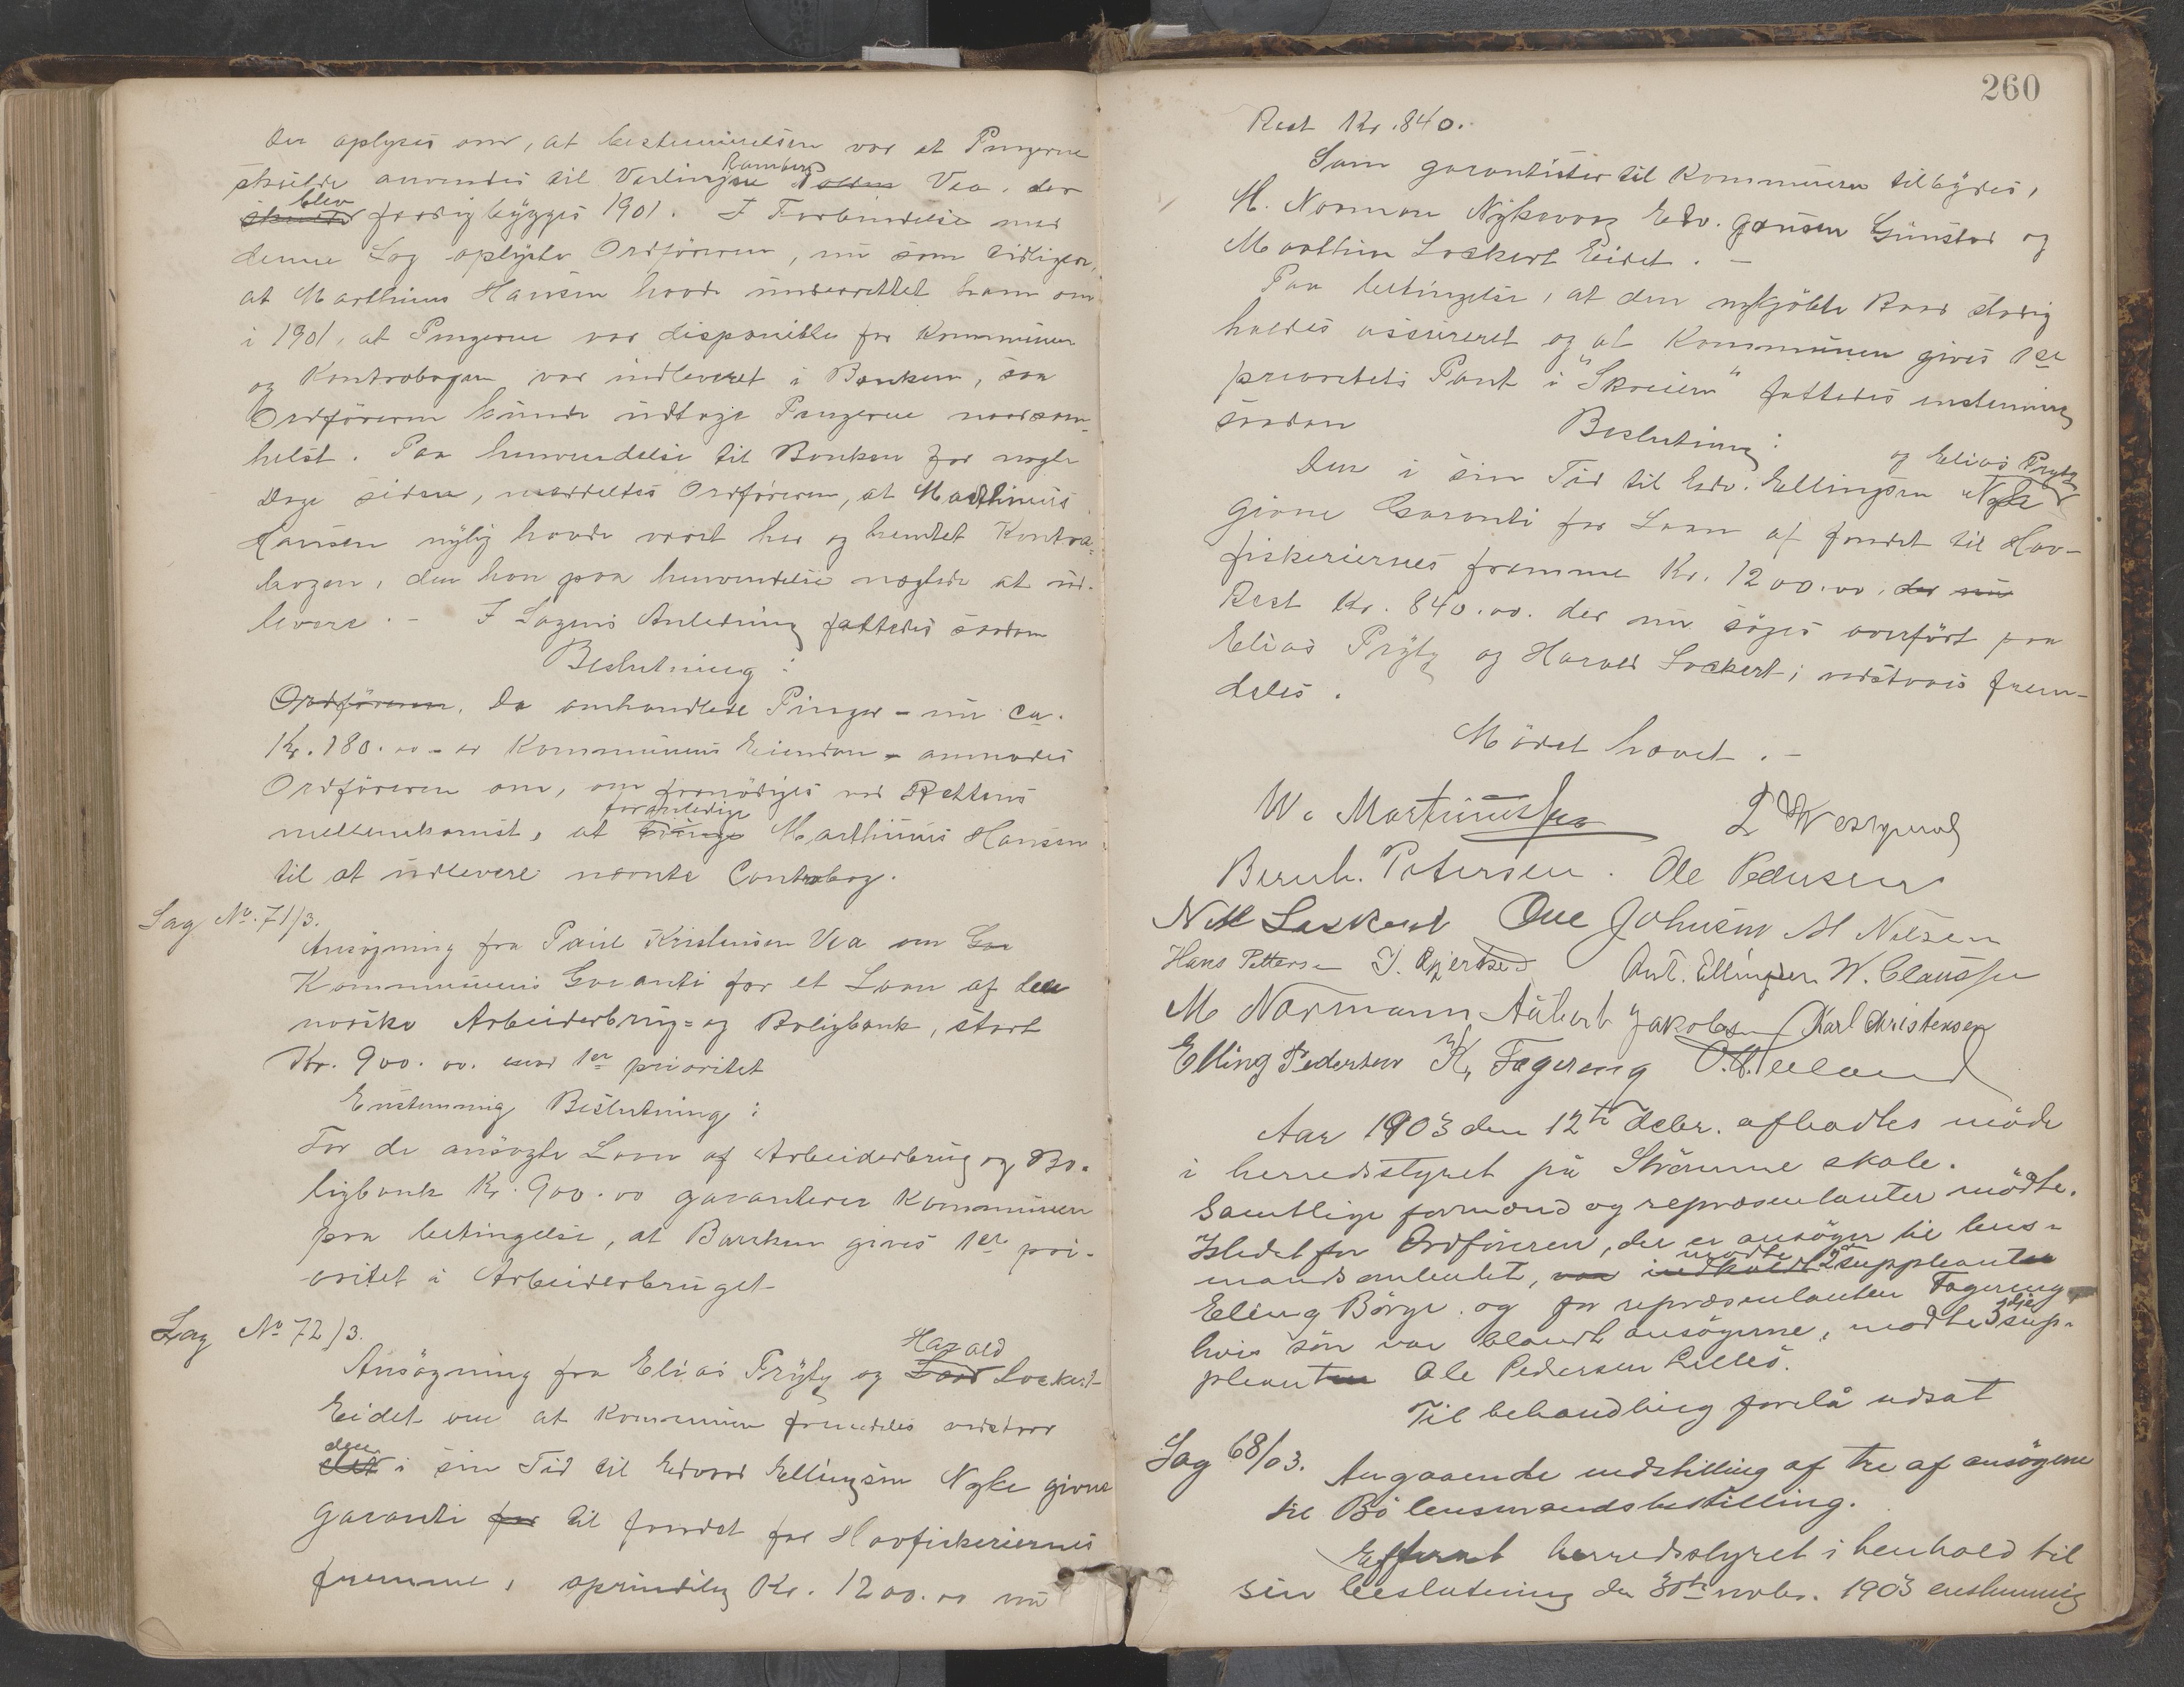 der oplyses om, at bestemmelsen var at Pengerne
skulde anvendes til Veilinjen Ramberg Vea, der
blev færdigbygges 1901. I Forbindelse med
denne Sag oplyste Ordföreren, nu som tidligere,
at Marthinus Hansen havde underrettet ham om
i 1901, at Pengerne var disponible for Kommunen
og Kontrabogen var indleveret i Banken, saa
Ordföreren kunde udtage Pengerne naarsom-
helst. Paa henvendelse til Banken for nogle
Dage siden, meddeltes Ordföreren, at Marthinus
Hansen nylig havde været her og hentet Kontra-
bogen, den han paa henvendelse nægtede at ud-
levere. - I Sagens Anledning fattedes saadan
Beslutning:
Ordföreren. Da omhandlede Penger - nu ca.
Kr. 180.00 - er Kommunens Eiendom - anmodes
Ordföreren om, om fornödiges ved Rettens
mellemkomst, at foranledige tvinge Marthinus Hansen
til at udlevere nævnte Contrabog.
Sag No. 71/3.
Ansögning fra Paul Kristensen Vea om Ga
Kommunens Garanti for et Laan af den
norske Arbeiderbrug- og Boligbank, stort
Kr. 900.00. mod 1er prioritet
Enstemmig Beslutning:
For de ansögte Laan af Arbeiderbrug og Bo-
ligbank Kr. 900.00 garanterer Kommunen
paa betingelse, at Banken gives 1er pri-
oritet i Arbeiderbruget
Sag No 72/3.
Ansögning fra Elias Prÿtz og Harald Lockert
Eidet om at Kommunen fremdeles vedstaar
den det i sin Tid til Edvard Ellingsen Nyke givne
garanti for til fondet for Havfiskeriernes
fremme, oprindelig Kr. 1200.00 nu
260
Rest Kr. 840.
Som garantister til Kommunen tilbydes,
M. Norman Nykvaag Edv. Jansen Gunstad og
Marthin Lockert Eidet. -
Paa betingelse, at den nykjöbte Baad stadig
holdes assureret og at Kommunen gives 1ste
prioritets Pant i "Skreien" fattedes enstemmig
saadan Beslutning:
Den i sin Tid til Edv. Ellingsen Nyke og Elias Prytz
givne Garanti for Laan af fondet til Hav-
fiskeriernes fremme Kr. 1200.00, der nu
Rest Kr. 840.00. der nu söges overfört paa
Elias Prÿtz og Harald Lockert, vedstaaes frem-
deles.
Mödet hævet. -
W. Martinussen
Bernh. Petersen. Ole Pedersen
Ove Johnsen M Nilsen
Hans Pettersen Ant. Ellingsen W. Claussen
M Normann Aabert Jakobsen Karl Christensen
Elling Pedersen K. Fagereng
Aar 1903 den 12te debr. afholdtes möde
i herredsstyret på Strömme skole.
Samtlige formænd og repræsentanter mödte.
Istedet for Ordföreren, der er ansöger til lens-
mandsembedet, var indkaldt mödte 2den suppleanten
Eling Börge. og for repræsentanten Fagereng,
hvis sön var blandt ansögerne, mödte 3die sup-
pleanten Ole Pedersen Lillés.
Til behandling forelå udsat
Sag 68/03. Angaaende indstilling af tre af ansögerne
til Bö lensmandsbestilling.
Efterat herredsstyret i henhold til
sin beslutning den 30te novbr. 1903 enstemmig